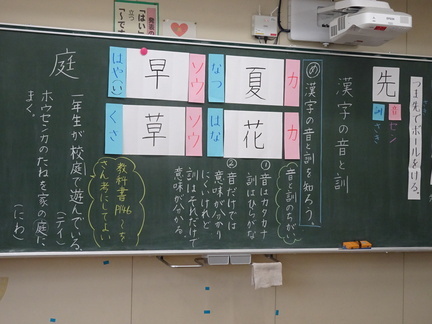 つま先でボールをける。
先
音
セン
訓
さき
漢字の音と訓
め 漢字の音と訓を知ろう。
カ
夏
なつ
カ
花
はな
ソウ
早
はや(い)
ソウ
草
くさ
音と訓のちがい
① 音はカタカナ
訓はひらがな
② 音だけでは
意味が分かり
にくいけれど
訓はそれだけで
意味が分かる。
教科書P146〜を
さん考にしてよい
庭
一年生が校庭で遊んでいる。
(テイ)
ホウセンカのたねを家の庭に
まく。
(にわ)
「はい」